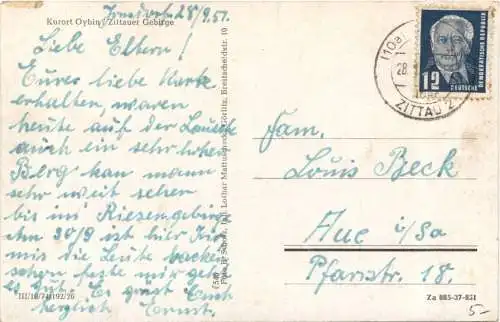 Kurort Oybin / Zittauer Gebirge
28/9.51.
Liebe Eltern!
Eure liebe Karte
erhalten, waren
heute auf der Lausche
auch ein sehr hoher
Berg kan mann
sehr weit sehen
bis ins Riesengebirge
Am 30/9 ist hier
mis die Leute backe
schon feste mir geht
es gut. Es grüst Euch
herzlich Ernst.
III/18/74/192/26
Lothar
Görlitz, Breitscheidstr. 10
(10a)
28.
ZITTAU 2
12
DEUTSCHE
DEMOKRATISCHE REPUBLIK
Fam.
Louis Beck
Aue i/Sa
Pfarrstr. 18.
Za 885-37-851
5-